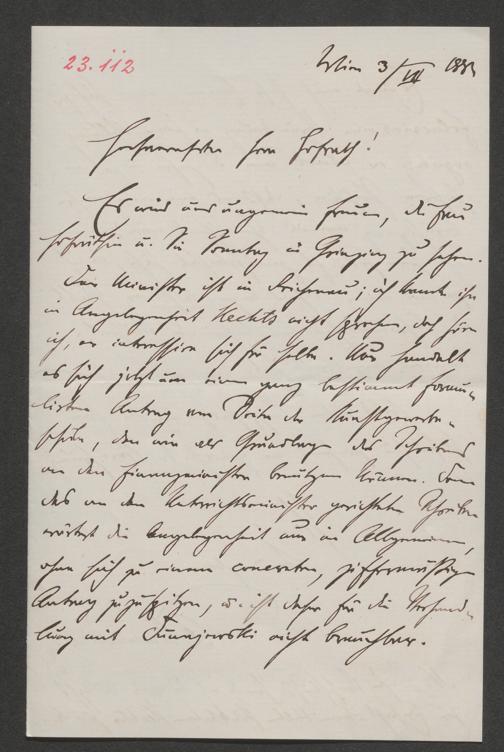 23.112
Wien 3/VII 188
Hochverehrter Herr Hofrath!
Es wird uns ungemein freuen, die Frau
Hofräthin u. Sie Sonntag in Grinzing zu sehen.
Der Minister ist in Reichenau; ich konnte ihn
in Angelegenheit Hechts nicht sprechen, doch höre
ich, er interessire sich für selbe. Nur handelt
es sich jetzt um einen ganz bestimmt formu-
lirten Antrag von Seiten der Kunstgewerbe-
schule, den wir als Grundlage des Schreibens
an den Finanzminister benützen können. Denn
das an den Unterrichtsminister gerichtete Schreiben
erörtert die Angelegenheit nur im Allgemeinen,
ohne sich zu einem concreten, ziffermässigen
Antrag zuzuspitzen, u. ist daher für die Verhand-
lung mit Dunajewski nicht brauchbar.